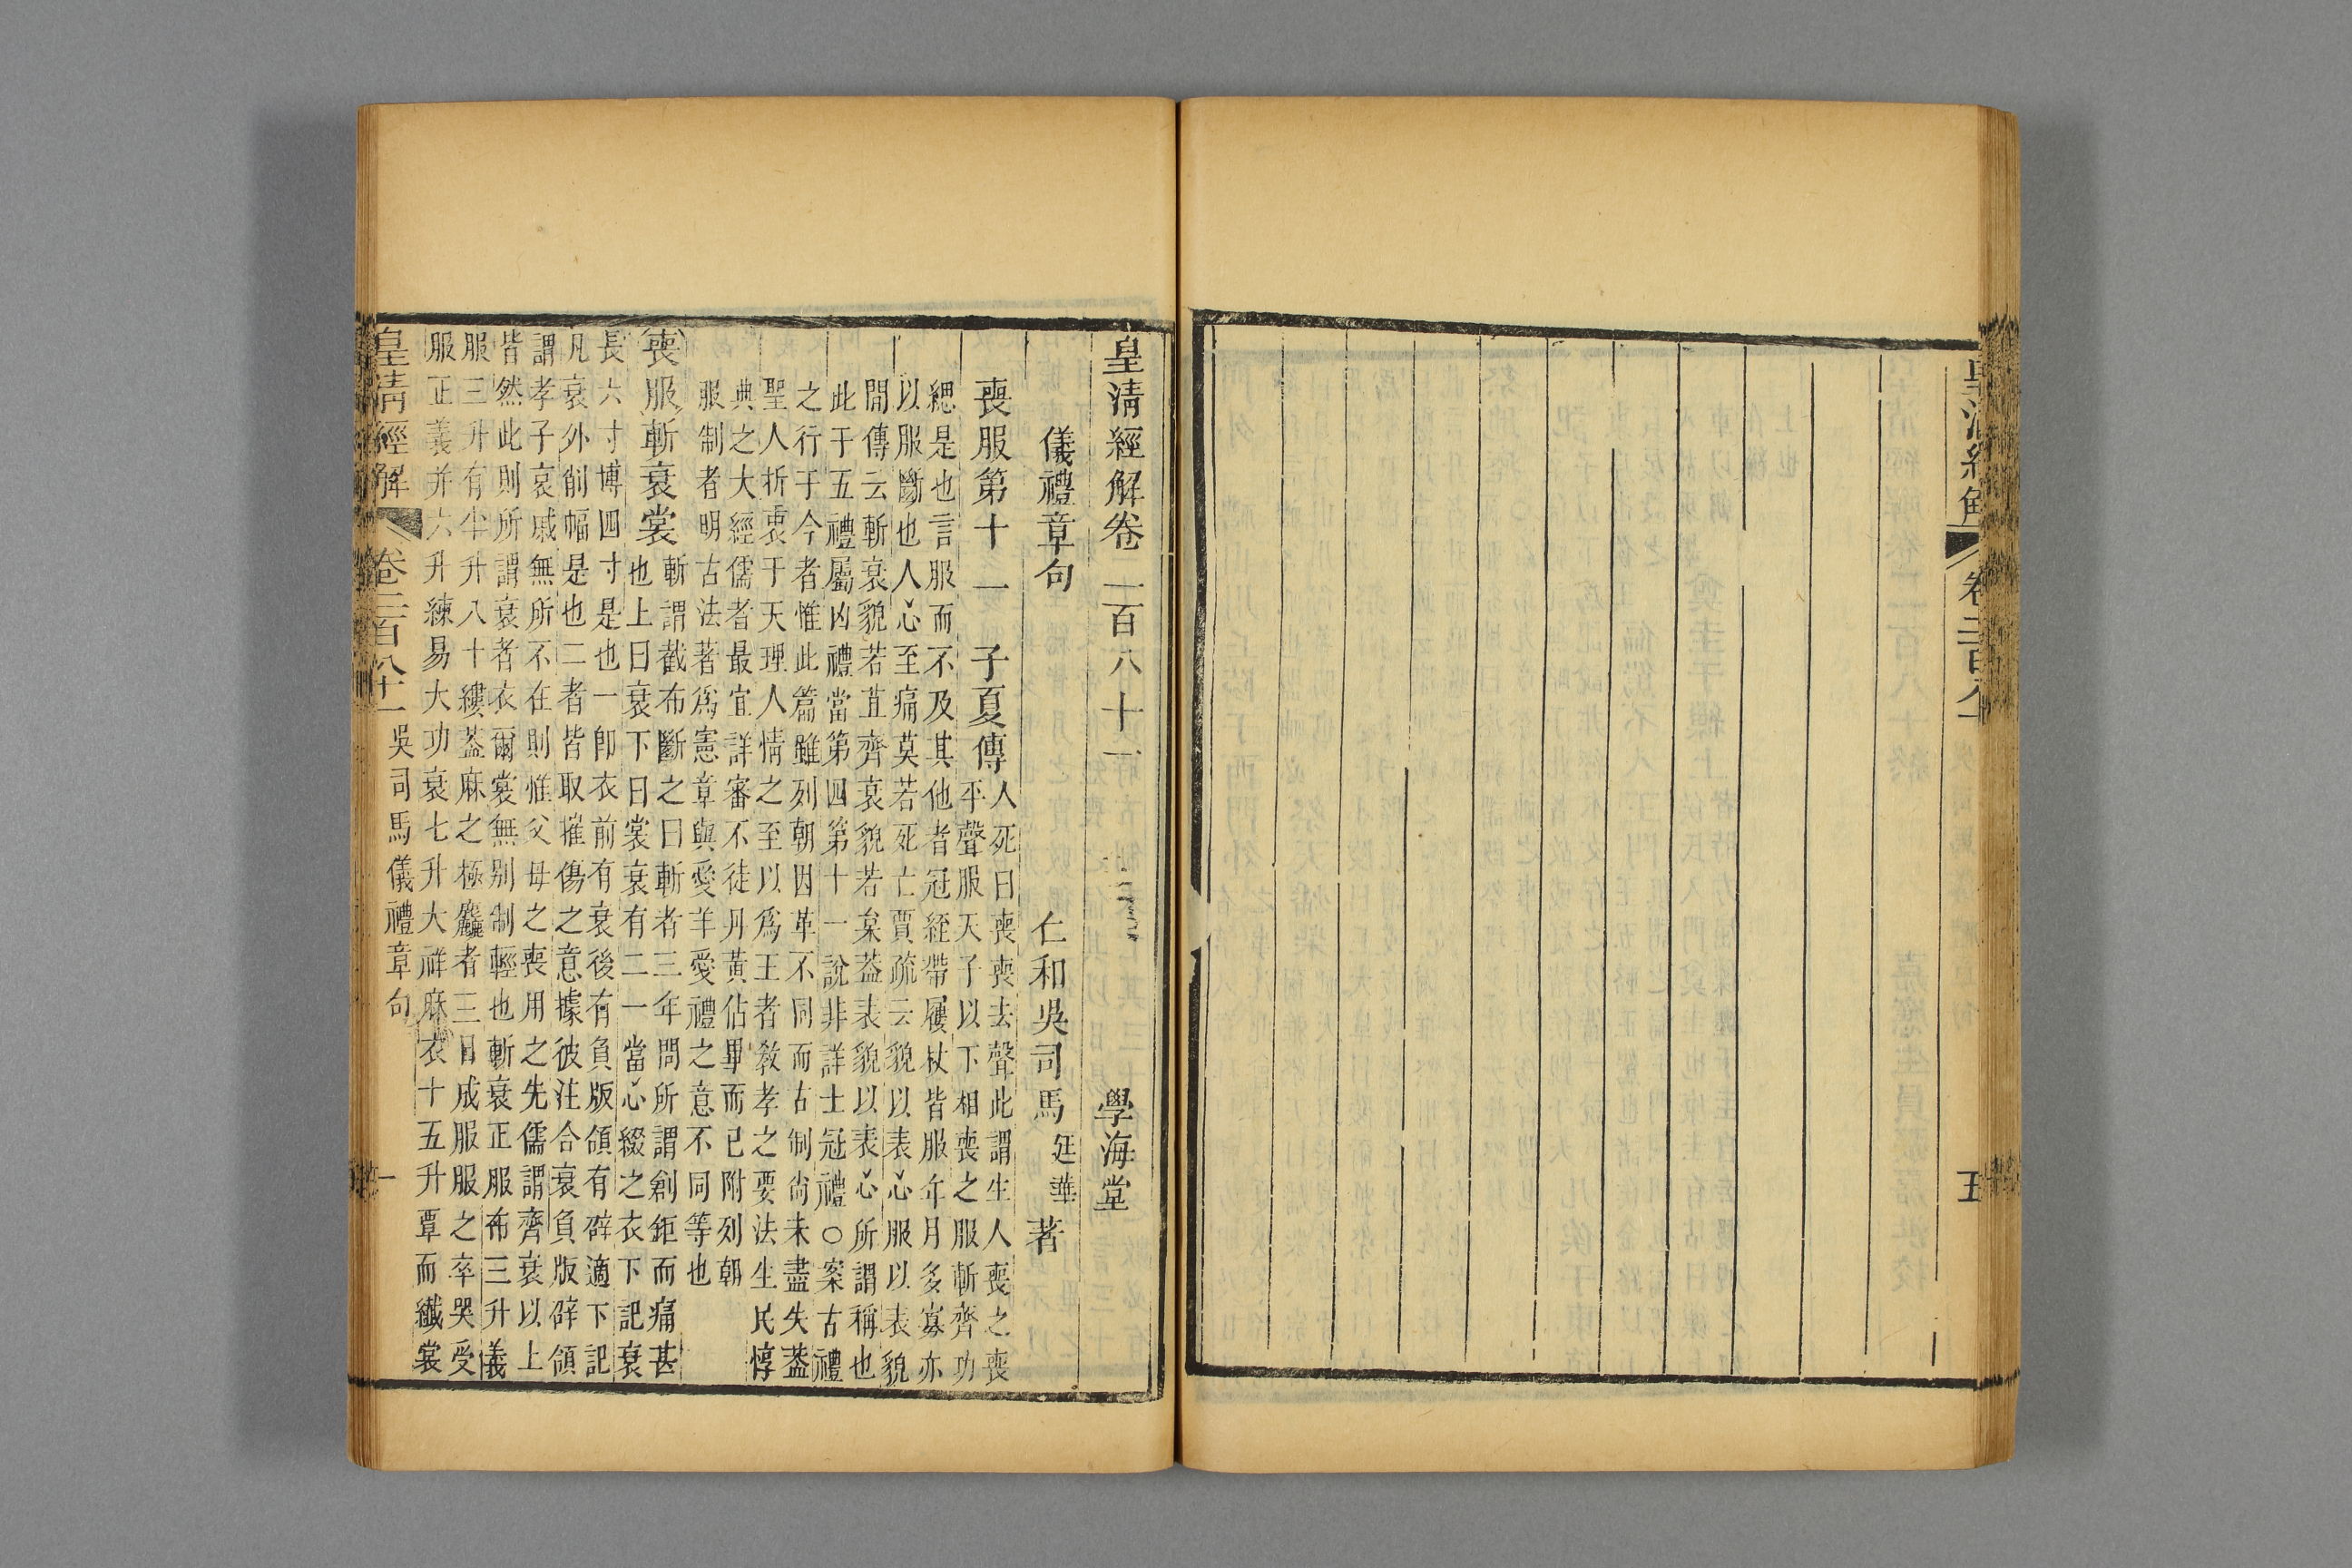 五
皇清經解卷二百八十一
學海堂
儀禮章句
仁和吳司馬廷華著
喪服第十一
子夏傳
人死曰喪喪去聲此謂生人喪之喪
平聲服天子以下相喪之服斬齊功
緦是也言服而不及其他者冠絰帶屨杖皆服年月多寡亦
以服斷也人心至痛莫若死亡賈疏云貌以表心服以表貌
閒傳云斬衰貌若苴齊衰貌若枲葢表貌以表心所謂稱也
此于五禮屬凶禮當第四第十一說非詳士冠禮○案古禮
之行于今者惟此篇雖列朝因革不同而古制尚未盡失葢
聖人折衷于天理人情之至以爲王者教孝之要法生民惇
典之大經儒者最宜詳審不徒丹黃佔畢而已附列朝
服制者明古法著爲憲章與愛羊愛禮之意不同等也
喪服斬衰裳
斬謂截布斷之曰斬者三年問所謂創鉅而痛甚
也上曰衰下曰裳衰有二一當心綴之衣下記衰
長六寸博四寸是也一卽衣前有衰後有負版領有辟適下記
凡衰外削幅是也二者皆取摧傷之意據彼注合衰負版辟領
謂孝子哀戚無所不在則惟父母之喪用之先儒謂齊衰以上
皆然此則所謂衰者衣爾裳無别制輕也斬衰正服布三升義
服三升有半升八十縷葢麻之極麤者三日成服服之卒哭受
服正義并六升練易大功衰七升大祥麻衣十五升覃而纖裳
皇清經解
卷二百八十一
吳司馬儀禮章句
一